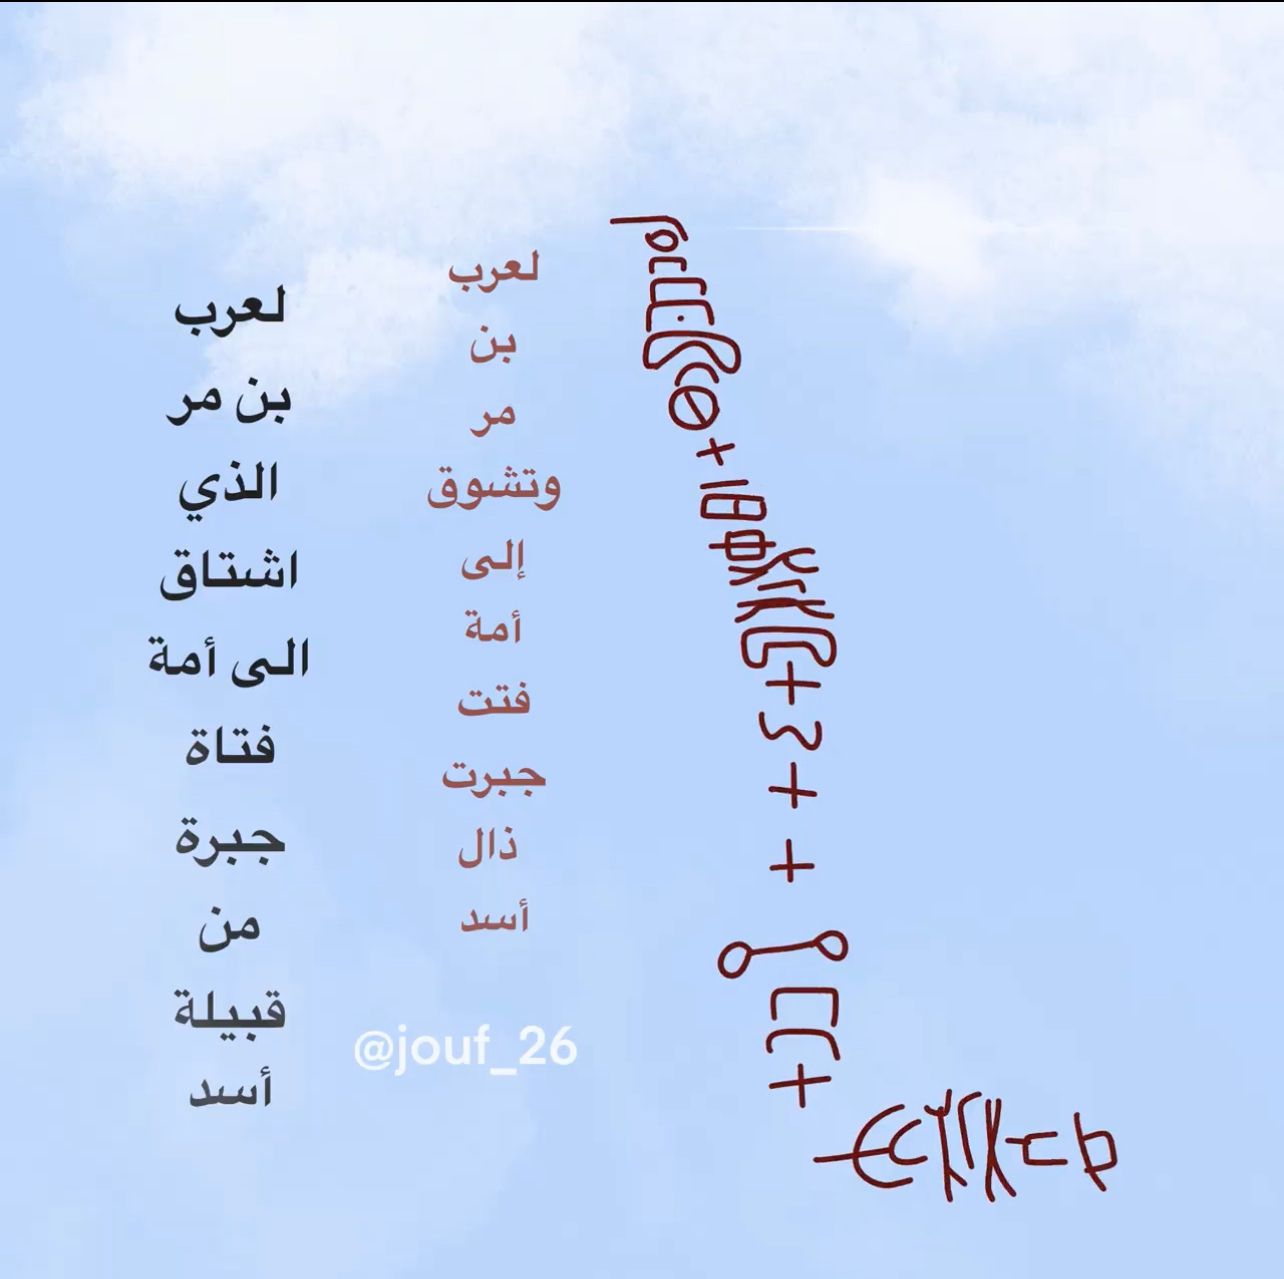 لعرب
بن مر
الذي
اشتاق
الى أمة
فتاة
جبرة
من
قبيلة
أسد
لعرب
بن
مر
وتشوق
إلى
أمة
فتت
جبرت
ذال
أسد
@jouf_26